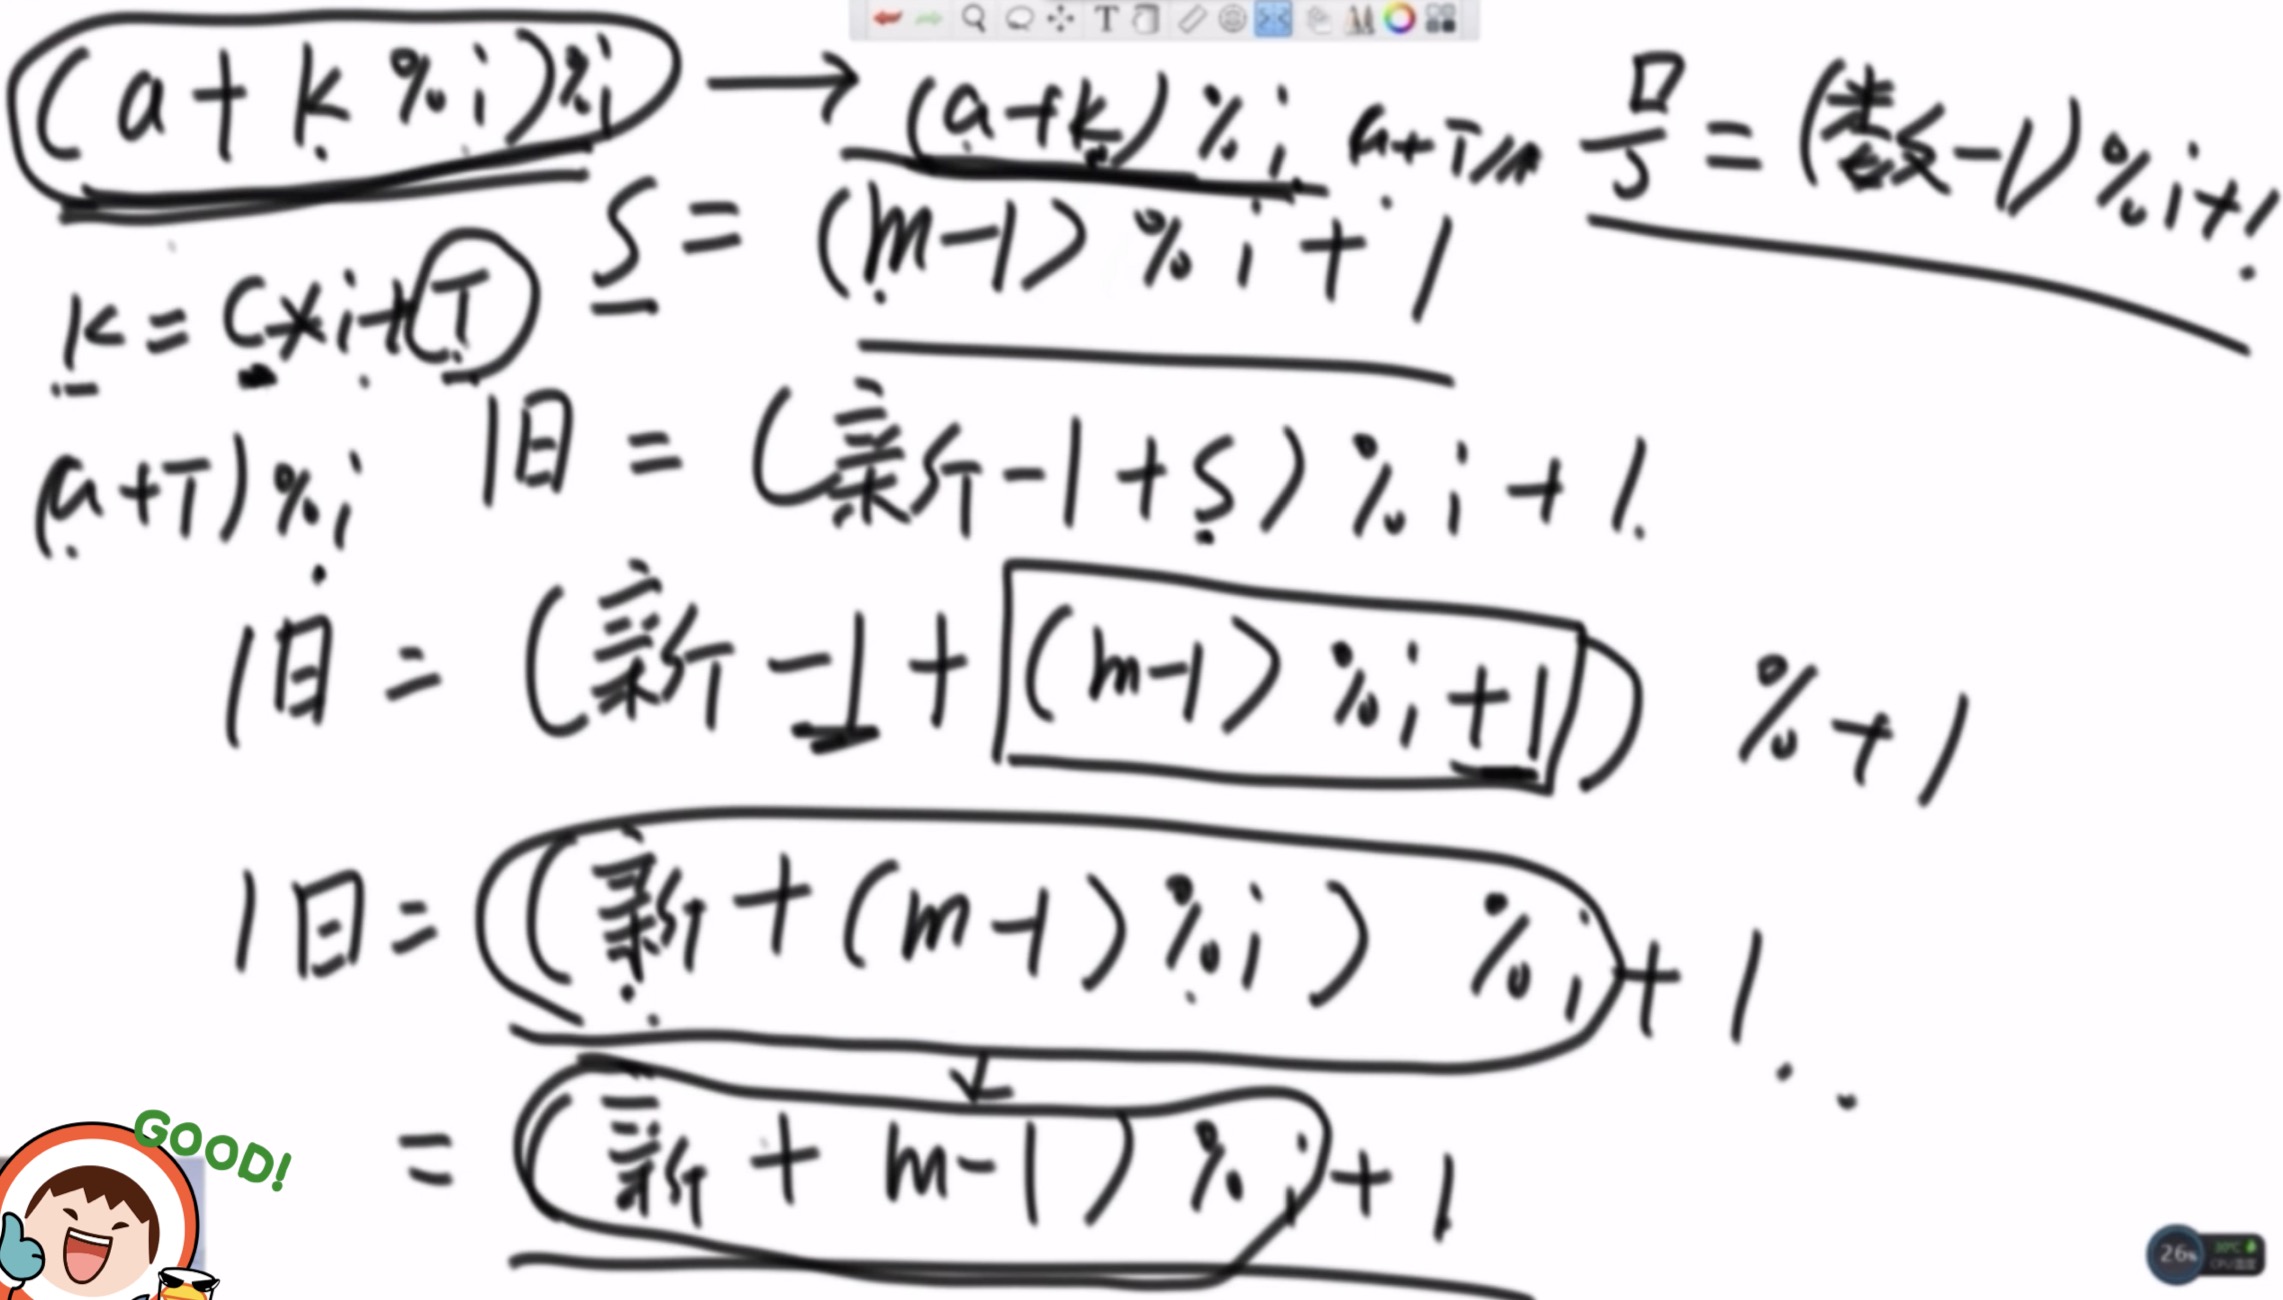 (a+k%i)%i → (a+k)%i a+T 号=(数-1)%i+1
k=c*i+T S=(m-1)%i+1
(a+T)%i 旧=(新-1+S)%i+1
旧=(新-1+(m-1)%i+1)%+1
旧=(新+(m-1)%i)%i+1
=(新+m-1)%i+1
GOOD!
26%